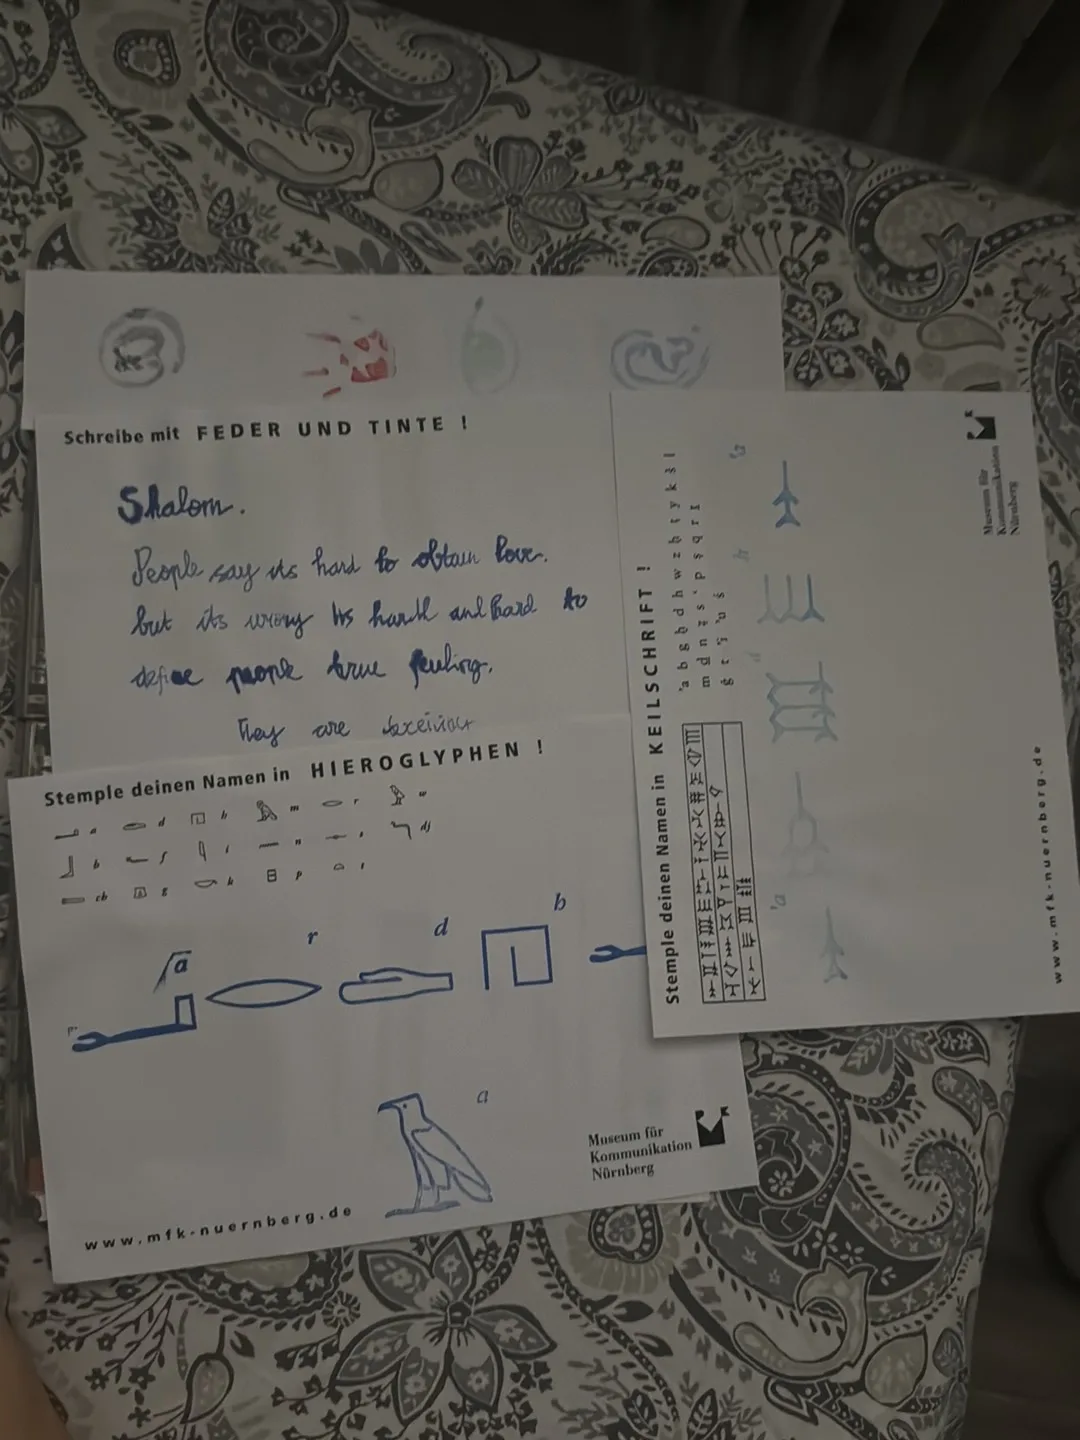 Schreibe mit FEDER UND TINTE !
Shalom.
People say its hard to obtain love.
but its wrong Its harsh and hard to
define people true feeling.
They are
Stemple deinen Namen in HIEROGLYPHEN !
a d h m r w
b f i n s dj
ch g k p t
a r d h
a
Museum für
Kommunikation
Nürnberg
www.mfk-nuernberg.de
Stemple deinen Namen in KEILSCHRIFT !
Museum für
Kommunikation
Nürnberg
www.mfk-nuernberg.de